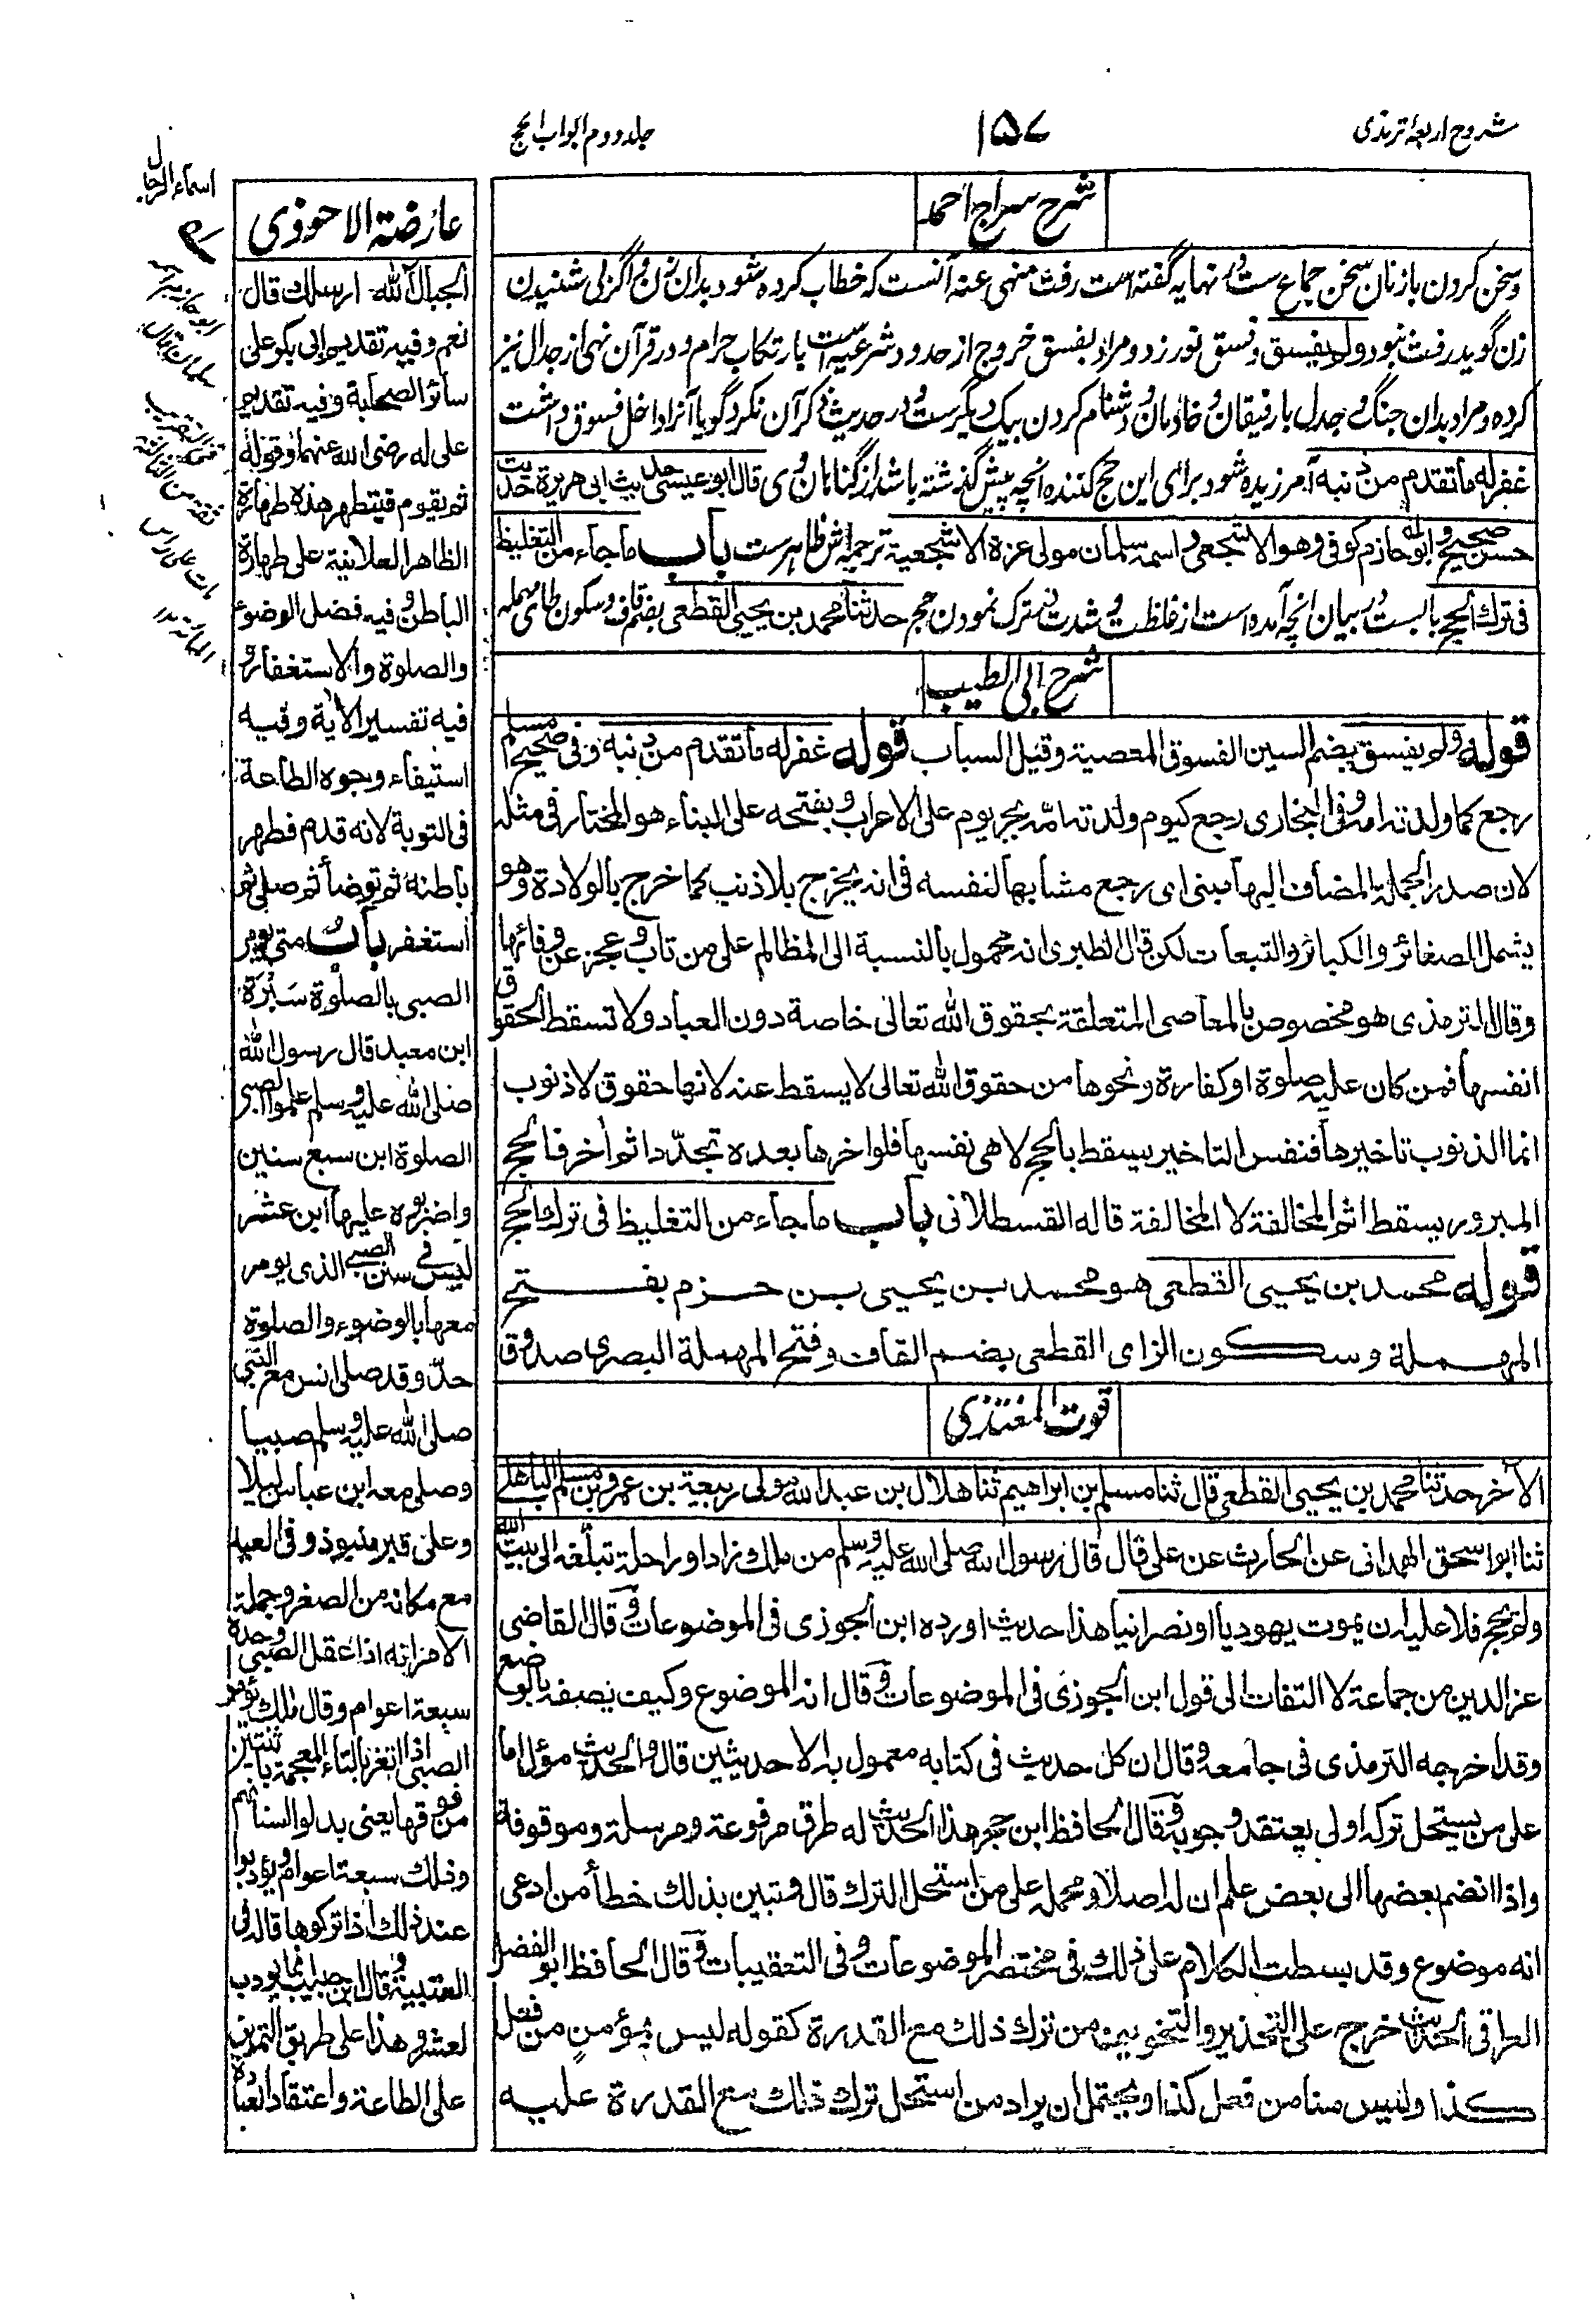 شروح اربعۂ ترمذی
۱۵۷
جلد دوم ابواب الحج
شرح سراج احمد
و سخن کردن با زنان سخن جماع ست و در نهایه گفته است رفث منهی عنه آنست که خطاب کرده شود بدان زن و اگر بی شنیدن
زن گوید رفث نبود ولم یفسق و فسق نورزد و مراد بفسق خروج از حدود شرعیه است بارتکاب حرام و در قرآن نهی از جدال نیز
کرده و مراد بدان جنگ و جدل با رفیقان و خادمان و دشنام کردن بیک دیگرست و در حدیث ذکر آن نکرد گویا آنرا داخل فسوق داشت
غفر له ما تقدم من ذنبه آمرزیده شود برای این حج کننده انچه پیش گذشته باشد از گناهان وی قال ابو عیسی حدیث ابی هریرة حدیث
حسن صحیح و ابو حازم کوفی وهو الاشجعی و اسمه سلمان مولی عزة الاشجعیة ترجمه اش ظاهرست باب ما جاء من التغلیظ
فی ترك الحج بابست در بیان انچه آمده است از غلظت و شدت در ترک نمودن حج حدثنا محمد بن یحیی القطعی بضم قاف و سکون طای مهمله
شرح ابی الطیب
قوله ولم یفسق بضم السین الفسوق المعصیة وقیل السباب قوله غفر له ما تقدم من ذنبه وفی صحیح مسلم
رجع کما ولدته امه وفی البخاری رجع کیوم ولدته امّه بجر یوم علی الاعراب وبفتحه علی البناء هو المختار فی مثله
لان صدر الجملة المضاف الیها مبنی ای رجع مشابها لنفسه فی انه یخرج بلا ذنب کما خرج بالولادة وهو
یشمل الصغائر والکبائر والتبعات لکن قال الطبری انه محمول بالنسبة الی المظالم علی من تاب وعجز عن وفائها
وقال الترمذی هو مخصوص بالمعاصی المتعلقة بحقوق الله تعالی خاصة دون العباد ولا تسقط الحقوق
انفسها فمن کان علیه صلوة او کفارة ونحوها من حقوق الله تعالی لا یسقط عنه لانها حقوق لا ذنوب
انما الذنوب تاخیرها فنفس التاخیر یسقط بالحج لا هی نفسها فلو اخرها بعده تجدّد اثم أخر فالحج
المبرور یسقط اثم المخالفة لا المخالفة قاله القسطلانی باب ما جاء من التغلیظ فی ترك الحج
قوله محمد بن یحیی القطعی هو محمد بن یحیی بن حزم بفتح
المهملة وسکون الزای القطعی بضم القاف وفتح المهملة البصری صدوق
قوت المغتذی
الأخر حدثنا محمد بن یحیی القطعی قال ثنا مسلم بن ابراهیم ثنا هلال بن عبد الله مولی ربیعة بن عمرو بن مسلم الباهلی
ثنا ابو اسحق الهمدانی عن الحارث عن علی قال قال رسول الله صلی الله علیه وسلم من ملك زادا وراحلة تبلّغه الی بیت الله
ولم یحج فلا علیه ان یموت یهودیا او نصرانیا هذا حدیث اورده ابن الجوزی فی الموضوعات وقال القاضی
عز الدین من جماعة لا التفات الی قول ابن الجوزی فی الموضوعات وقال انه الموضوع وکیف یصفه بالوضع
وقد اخرجه الترمذی فی جامعه وقال ان کل حدیث فی کتابه معمول به الا حدیثین قال والحدیث مؤل اما
علی من یستحل ترکه اولی یعتقد وجوبه وقال الحافظ ابن حجر هذا الحدیث له طرق مرفوعة ومرسلة وموقوفة
واذا انضم بعضها الی بعض علم ان له اصلا ومحمله علی من استحل الترك قال وتبین بذلك خطأ من ادعی
انه موضوع وقد بسطت الکلام علی ذلك فی مختصر الموضوعات وفی التعقیبات وقال الحافظ ابو الفضل
العراقی الحدیث خرج علی التحذیر والتخویف من ترك ذلك مع القدرة کقوله لیس بمؤمن من فعل
کذا ولیس منا من فعل کذا ویحتمل ان یراد من استحل ترك ذلك مع القدرة علیه
عارضة الاحوذی
الجبال الله ارسلك قال
نعم وفیه تقدیم ابی بکر علی
سائر الصحابة وفیه تقدیم
علی له رضی الله عنهما وقوله
ثم یقوم فیتطهر هذه طهارة
الظاهر العلانیة علی طهارة
الباطن وفیه فضل الوضوء
والصلوة والاستغفار و
فیه تفسیر الأیة وفیه
استیفاء وجوه الطاعة
فی التوبة لانه قدم فطهر
باطنه ثم توضأ ثم صلی ثم
استغفر باب متی یؤمر
الصبی بالصلوة سَبْرَة
ابن معبد قال رسول الله
صلی الله علیه وسلم علموا الصبی
الصلوة ابن سبع سنین
واضربوه علیها ابن عشر
لیس فی سنن الصبی الذی یومر
معها بالوضوء والصلوة
حدّ وقد صلی انس مع النبی
صلی الله علیه وسلم صبیا
وصلی معه ابن عباس لیلا
وعلی قبر منبوذ وفی العید
مع مکانه من الصغر وجملة
الامر انه اذا عقل الصبی وحده
سبعة اعوام وقال مالك یؤمر
الصبی اذا اثغر بالتاء المعجمة باثنتین
من فوقها یعنی بدلوا اسنانهم
وذلك سبعة اعوام ویؤدبوا
عند ذلك اذا ترکوها قاله فی
العتبیة وقال ابن حبیب انما یودب
لعشر وهذا علی طریق التمرین
علی الطاعة واعتقاد العبادة
اسماء الرجال